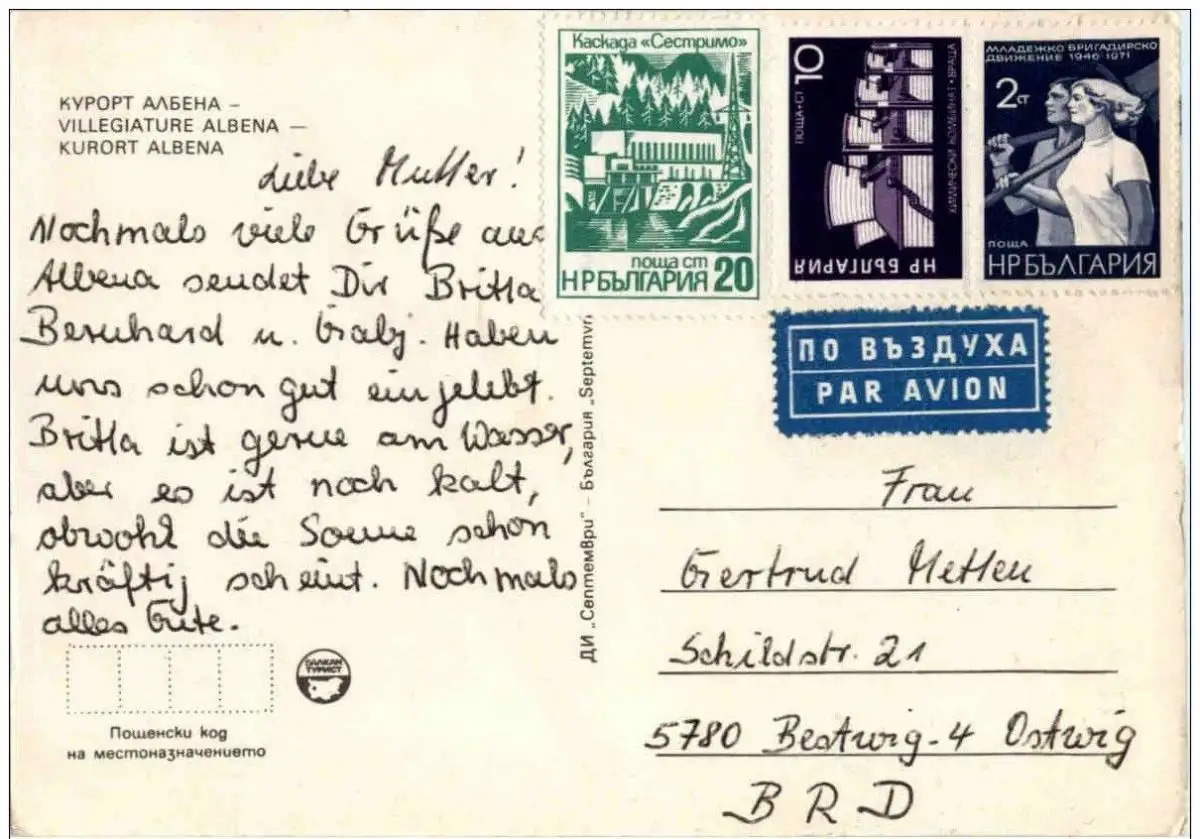 КУРОРТ АЛБЕНА –
VILLEGIATURE ALBENA –
KURORT ALBENA
Liebe Mutter!
Nochmals viele Grüße aus
Albena sendet Dir Britta
Bernhard u. Gabj. Haben
uns schon gut eingelebt.
Britta ist gerne am Wasser,
aber es ist noch kalt,
obwohl die Sonne schon
kräftig scheint. Nochmals
alles Gute.
БАЛКАН
ТУРИСТ
Пощенски код
на местоназначението
ДИ „Септември“ – България „Septemvri
Каскада «Сестримо»
поща ст
НРБЪЛГАРИЯ 20
ПОЩА • СТ 10
ХИМИЧЕСКИ КОМБИНАТ • ВРАЦА
НР БЪЛГАРИЯ
МЛАДЕЖКО БРИГАДИРСКО
ДВИЖЕНИЕ 1946-1971
2 СТ
ПОЩА
НРБЪЛГАРИЯ
ПО ВЪЗДУХА
PAR AVION
Frau
Gertrud Metten
Schildstr. 21
5780 Bestwig-4 Ostwig
BRD